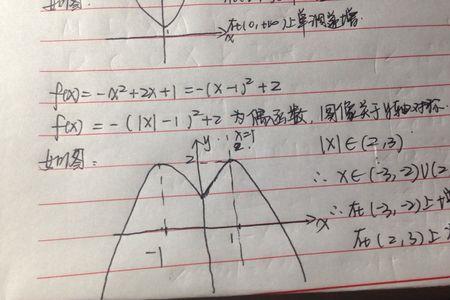 如图:
在(0,+∞)上单调递增.
x
f(x)=-x²+2x+1=-(x-1)²+2
f(x)=-(|x|-1)²+2 为偶函数,图像关于y轴对称.
如图:
y
x=1
2
|x|∈(2,3)
∴ x∈(-3,-2)∪(2
x
∴在(-3,-2)上
-1
1
在(2,3)上